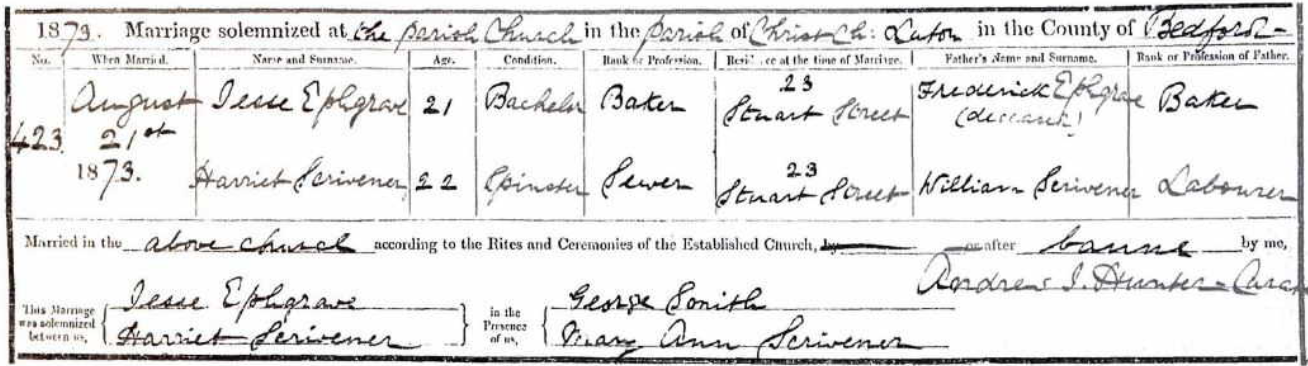 1873. Marriage solemnized at the parish Church in the parish of Christ Ch: Luton in the County of Bedford
No. When Married. Name and Surname. Age. Condition. Rank or Profession. Residence at the time of Marriage. Father's Name and Surname. Rank or Profession of Father.
423 August 21st 1873. Jesse Ephgrave 21 Bachelor Baker 23 Stuart Street Frederick Ephgrave (deceased) Baker
Harriet Scrivener 22 Spinster Sewer 23 Stuart Street William Scrivener Labourer
Married in the above church according to the Rites and Ceremonies of the Established Church, by or after banns by me,
Andrew J. Hunter
This Marriage was solemnized between us, Jesse Ephgrave in the Presence of us, George Smith
Harriet Scrivener Mary Ann Scrivener